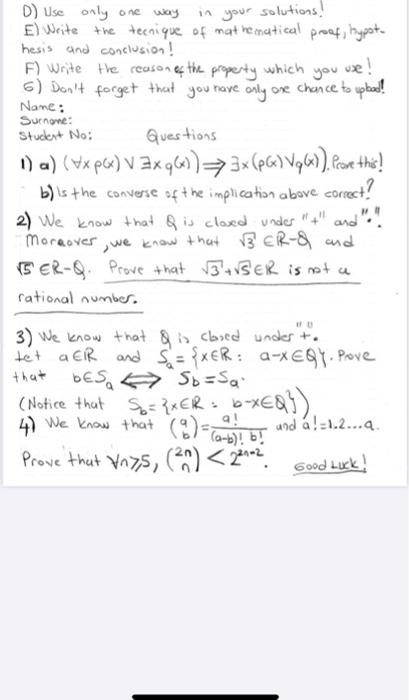 D) Use only one way in your solutions!
E) Write the tecnique of mathematical proof, hypot-
hesis and conclusion!
F) Write the reason of the property which you use!
G) Don't forget that you have only one chance to upload!
Name:
Surname:
Student No:
Questions
1) a) (∀x p(x) ∨ ∃x q(x)) ⇒ ∃x (p(x) ∨ q(x)). Prove this!
b) Is the converse of the implication above correct?
2) We know that Q is closed under "+" and "."!
Moreover, we know that √3 ∈ R-Q and
√5 ∈ R-Q. Prove that √3+√5 ∈ R is not a
rational number.
3) We know that Q is closed under "+".
Let a∈R and Sa = {x∈R : a-x∈Q}. Prove
that b∈Sa ⟺ Sb = Sa.
(Notice that Sb = {x∈R : b-x∈Q})
4) We know that (a b) = a!/(a-b)! b! and a! = 1.2...a.
Prove that ∀n≥5, (2n n) < 2^2n-2. Good Luck!